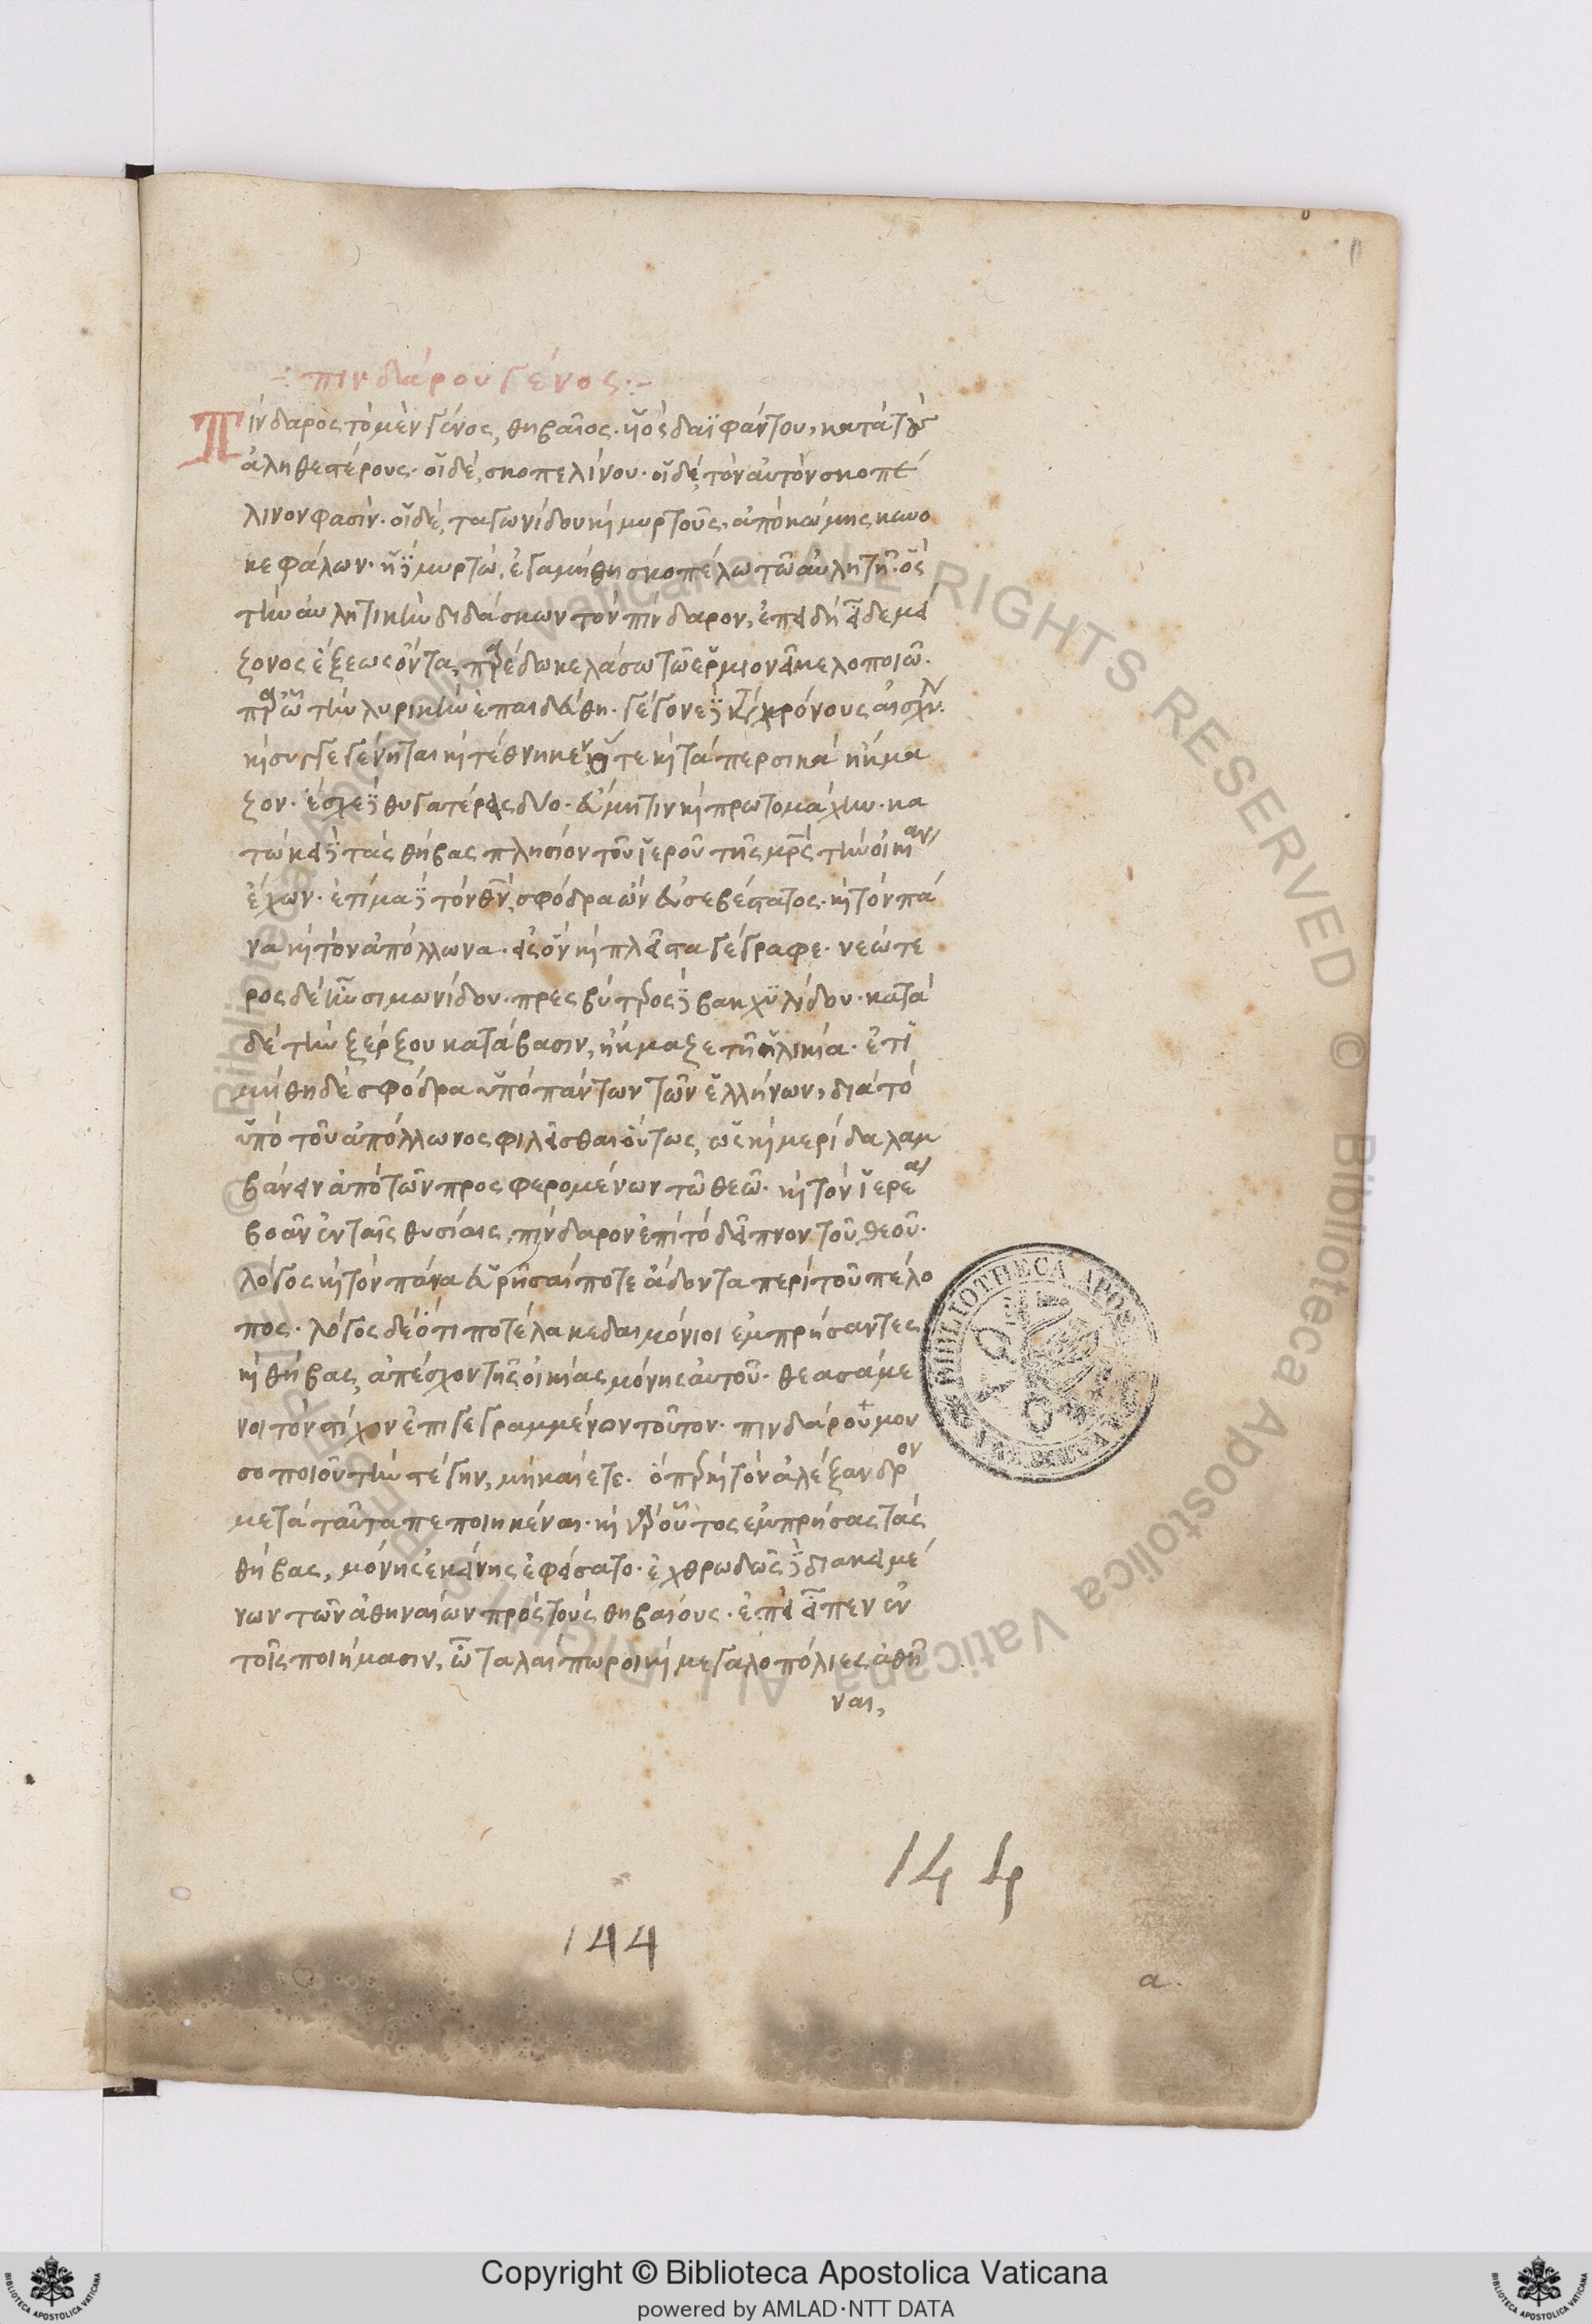 πινδάρου γένος
Πίνδαρος τὸ μὲν γένος, θηβαῖος. υἱὸς δαϊφάντου, κατὰ τοὺς
ἀληθεστέρους. οἱ δὲ, σκοπελίνου. οἱ δὲ, τὸν αὐτὸν σκοπε
λῖνον φασὶν. οἱ δὲ, παγωνίδου καὶ μυρτοῦς, ἀπὸ κώμης κυνο
κεφάλων. ἡ δὲ μυρτὼ, ἐγαμήθη σκοπελίνω τῶ αὐλητῆ. ὃς
τὴν αὐλητικὴν διδάσκων τὸν πίνδαρον, ἐπεὶ δὴ εἶδε μεί
ζονος ἕξεως ὄντα, παρέδωκε λάσω τῶ ἑρμιονεῖ μελοποιῶ.
παρ' ὧ τὴν λυρικὴν ἐπαιδεύθη. γέγονε δὲ κατὰ τοὺς χρόνους αἰσχύλου.
καὶ συγγεγένηται καὶ τέθνηκεν ὅτε καὶ τὰ περσικὰ ἤκμα
ζον. ἔσχε δὲ θυγατέρας δύο. εὔμητιν καὶ πρωτομάχην. κα
τώκει δὲ τὰς θήβας πλησίον τοῦ ἱεροῦ τῆς μητρὸς τὴν οἰκίαν
ἔχων. ἐτίμα δὲ τὸν θεὸν, σφόδρα ὢν εὐσεβέστατος. καὶ τὸν πᾶ
να καὶ τὸν ἀπόλλωνα. εἰς ὃν καὶ πλεῖστα γέγραφε. νεώτε
ρος δὲ ἦν σιμωνίδου. πρεσβύτερος δὲ βακχυλίδου. κατὰ
δὲ τὴν ξέρξου κατάβασιν, ἤκμαζε τῆ ἡλικία. ἐτι
μήθη δὲ σφόδρα ὑπὸ πάντων τῶν ἑλλήνων, διὰ τὸ
ὑπὸ τοῦ ἀπόλλωνος φιλεῖσθαι οὕτως, ὡς καὶ μερίδα λαμ
βάνειν ἀπὸ τῶν προσφερομένων τῶ θεῶ. καὶ τὸν ἱερέα
βοᾶν ἐν ταῖς θυσίαις, πίνδαρον ἐπὶ τὸ δεῖπνον τοῦ θεοῦ.
λόγος καὶ τὸν πᾶνα εὑρῆσθαί ποτε ἄδοντα περὶ τοῦ πέλο
πος. λόγος δὲ ὅτι ποτὲ λακεδαιμόνιοι ἐμπρήσαντες
καὶ θήβας, ἀπέσχοντο τῆς οἰκίας μόνης αὐτοῦ. θεασάμε
νοι τὸν στίχον ἐπιγεγραμμένον τοῦτον. πινδάρου τοῦ μου
σοποιοῦ τὴν στέγην, μὴ καίετε. ὅπερ καὶ τὸν ἀλέξανδρον
μετὰ ταῦτα πεποιηκέναι. καὶ γὰρ οὗτος ἐμπρήσας τὰς
θήβας, μόνης ἐκείνης ἐφείσατο. ἐχθρωδῶς δὲ διακειμέ
νων τῶν ἀθηναίων πρὸς τοὺς θηβαίους. ἐπεὶ εἶπεν ἐν
τοῖς ποιήμασιν, ὦ ταλαίπωροι καὶ μεγαλοπόλιες ἀθῆ
ναι,
144
144
a.
BIBLIOTHECA APOSTOLICA VATICANA
© Biblioteca Apostolica Vaticana ALL RIGHTS RESERVED
Copyright © Biblioteca Apostolica Vaticana
powered by AMLAD·NTT DATA